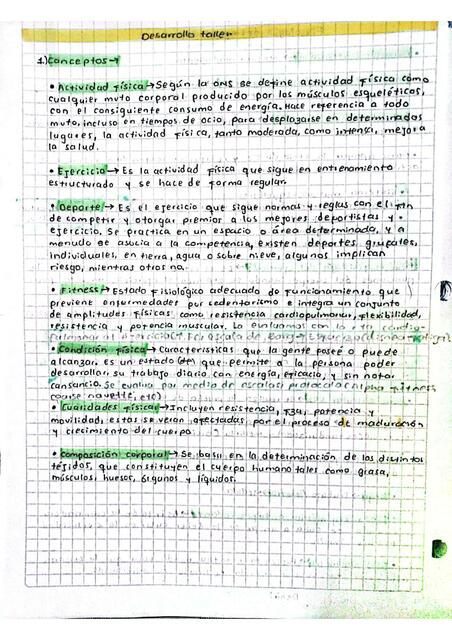 Desarrollo taller
1.) Conceptos →
• Actividad física → Según la OMS se define actividad física como
cualquier mvto corporal producido por los músculos esqueléticos,
con el consiguiente consumo de energía. Hace referencia a todo
mvto, incluso en tiempos de ocio, para desplazarse en determinados
lugares, la actividad física, tanto moderada, como intensa, mejora
la salud.
• Ejercicio → Es la actividad física que sigue en entrenamiento
estructurado y se hace de forma regular.
• Deporte → Es el ejercicio que sigue normas y reglas con el fin
de competir y otorgar premios a los mejores deportistas y
ejercicio. Se practica en un espacio o área determinada, y a
menudo se asocia a la competencia, existen deportes grupales,
individuales, en tierra, agua o sobre nieve, algunos implican
riesgo, mientras otros no.
• Fitness → Estado fisiológico adecuado de funcionamiento que
previene enfermedades por sedentarismo e integra un conjunto
de amplitudes físicas como resistencia cardiopulmonar, flexibilidad,
resistencia y potencia muscular. La evaluamos con la
• Condición física → Características que la gente posee o puede
alcanzar, es un estado que permite a la persona poder
desarrollar su trabajo diario con energía, eficacia, y sin notar
cansancio. Se evalua por medio de escalas, protocolo (Alpha fitness,
course navette, etc)
• Cualidades físicas → Incluyen resistencia, fza, potencia y
movilidad, estas se verán afectadas por el proceso de maduración
y crecimiento del cuerpo
• Composición corporal → Se basa en la determinación de los distintos
tejidos, que constituyen el cuerpo humano tales como grasa,
músculos, huesos, órganos y líquidos.